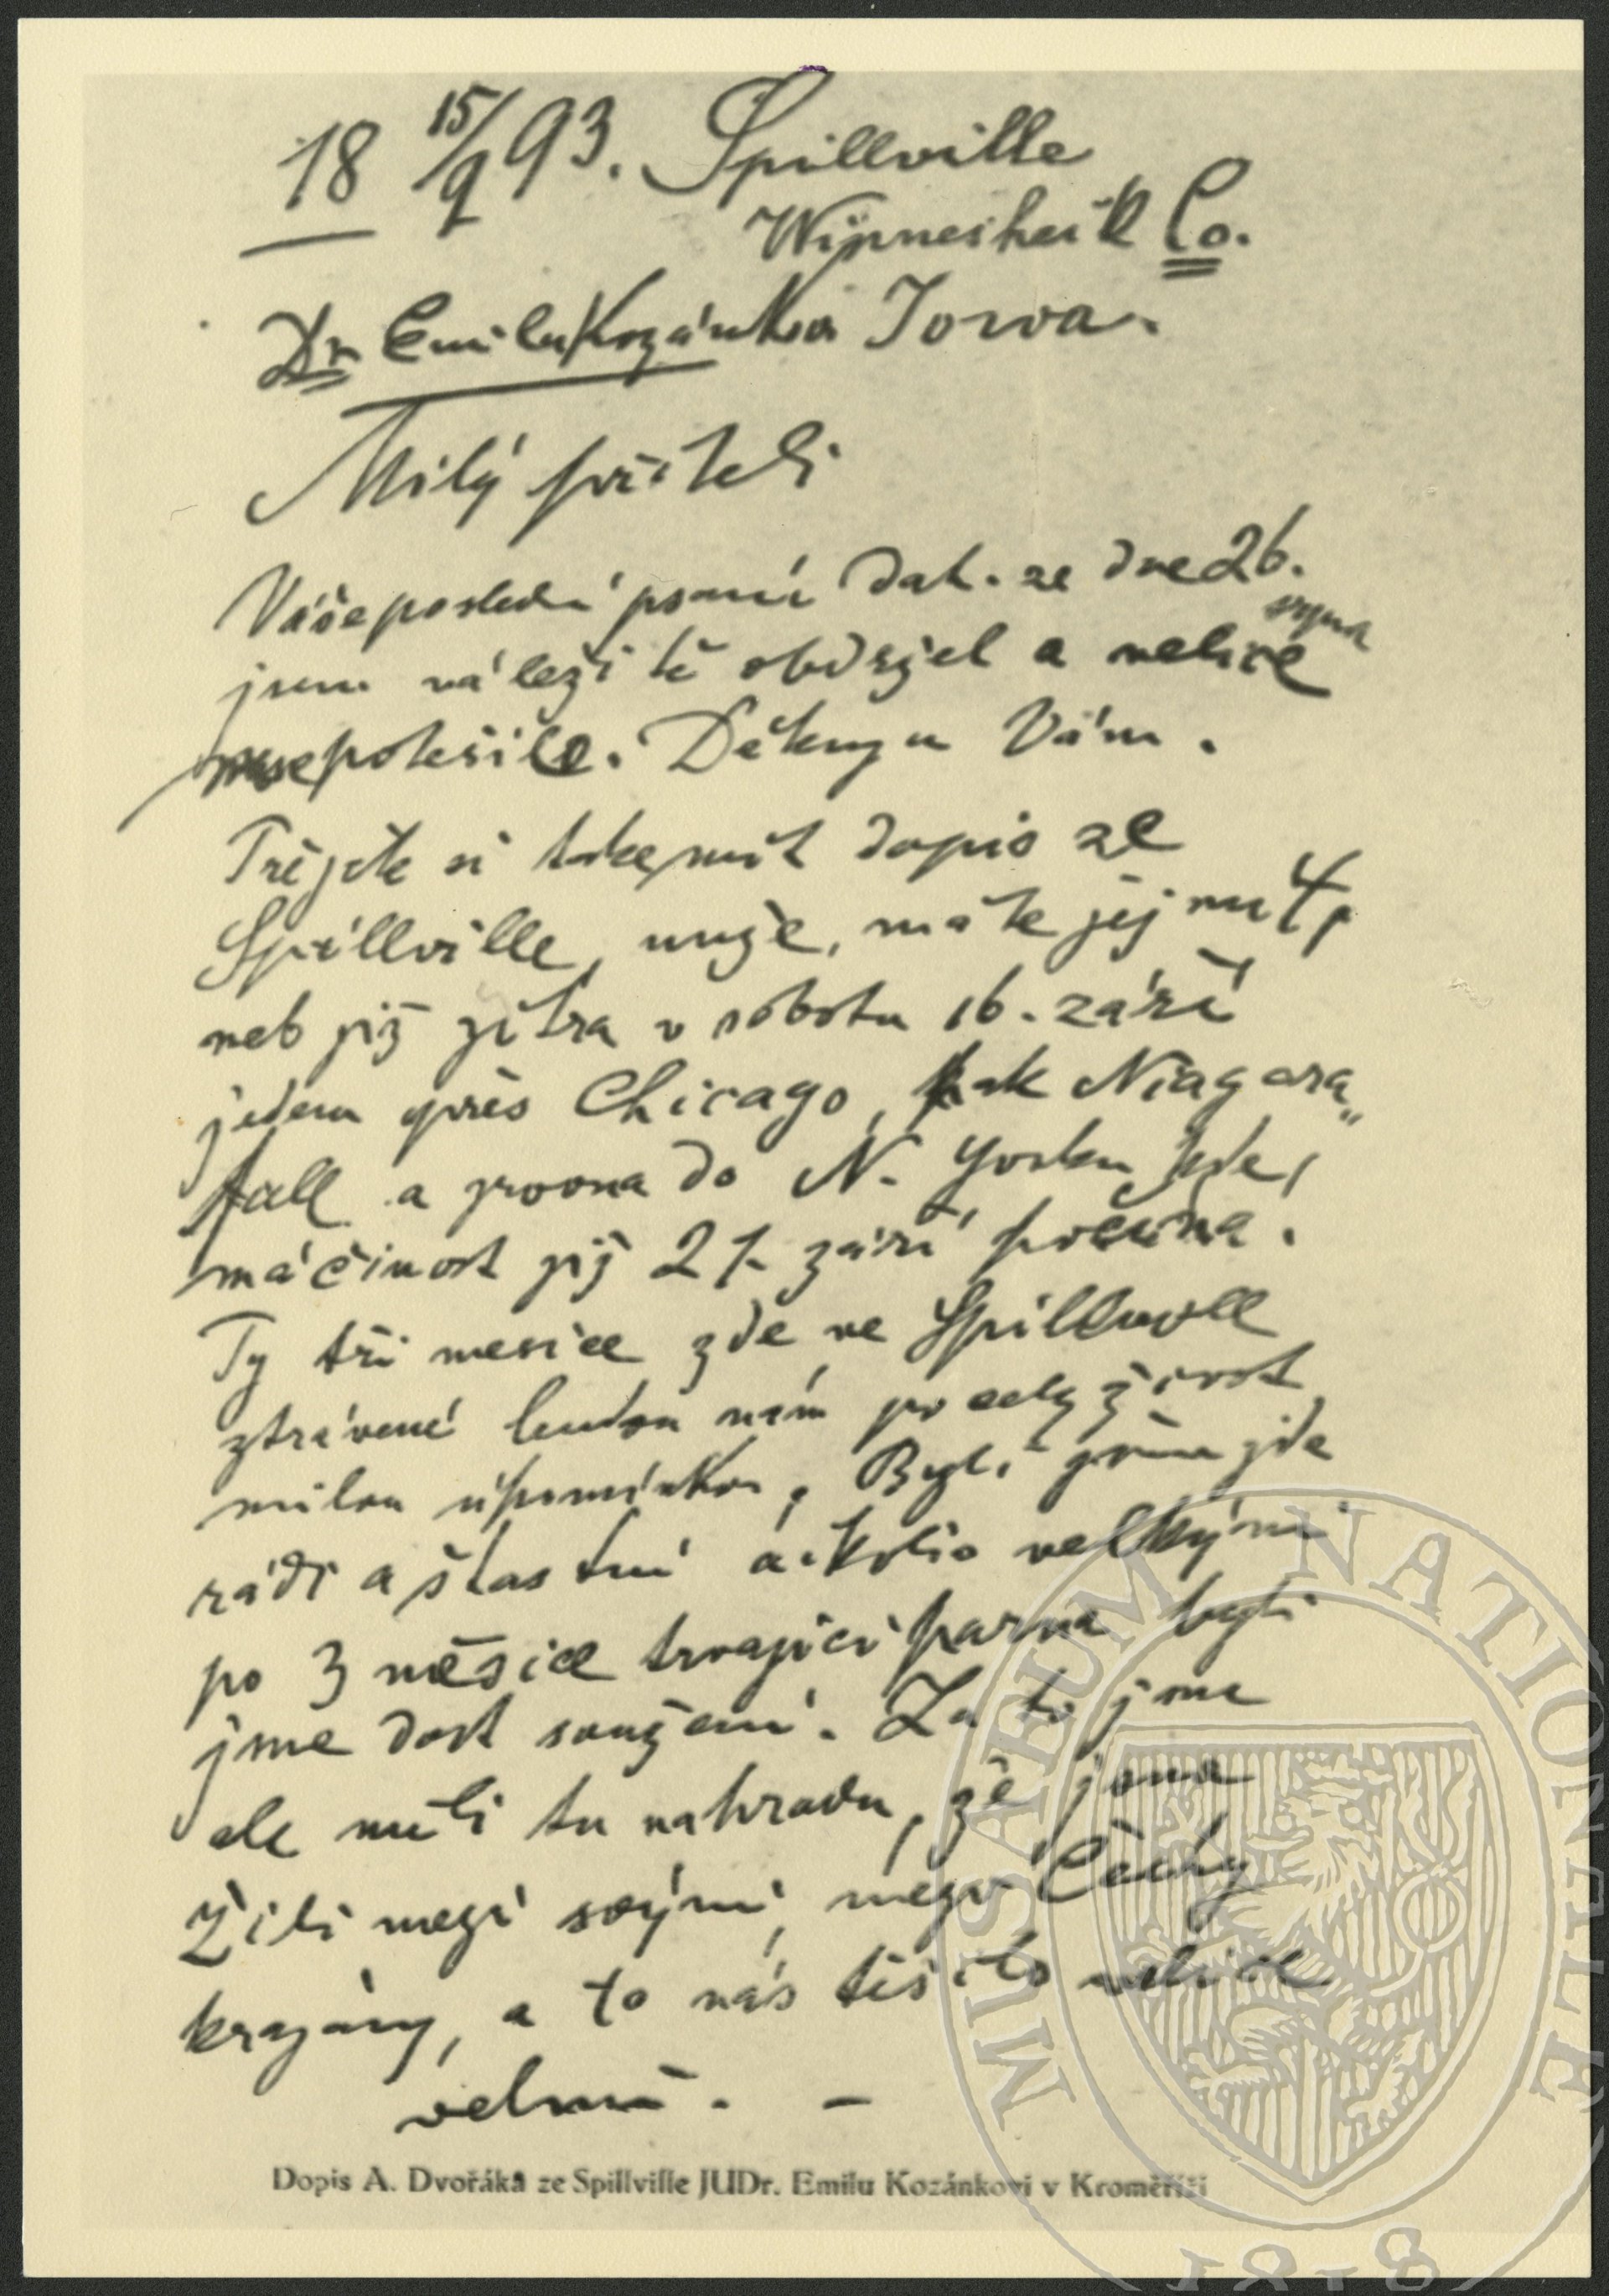 18 15/9 93. Spillville
Winnesheik Co.
Dr Emilu Kozánkovi Iowa.
Milý příteli
Vaše poslední psaní dat. ze dne 26.
srpna
jsem náležitě obdržel a velice
mne potěšilo. Děkuju Vám.
Přejete si také mít dopis ze
Spillville, nuže, máte jej mít
neb již zítra v sobotu 16. září
jedem přes Chicago, pak Niagara„
fall a zrovna do N. Yorku kde
má činost již 21. září počíná.
Ty tři mesíce zde ve Spillville
ztrávené budou nám po celý život
milou upomínkou. Byli jsme zde
rádi a štastní ačkoliv velkými
po 3 měsíce trvající parna byli
jsme dost souženi. Za to jsme
ale měli tu nahradu, že jsme
žili mezi svými, mezi Čechy
krajany, a to nás těšilo velice
velmi. –
Dopis A. Dvořáka ze Spillville JUDr. Emilu Kozánkovi v Kroměříži
MUSAEUM NATIONALE
1818